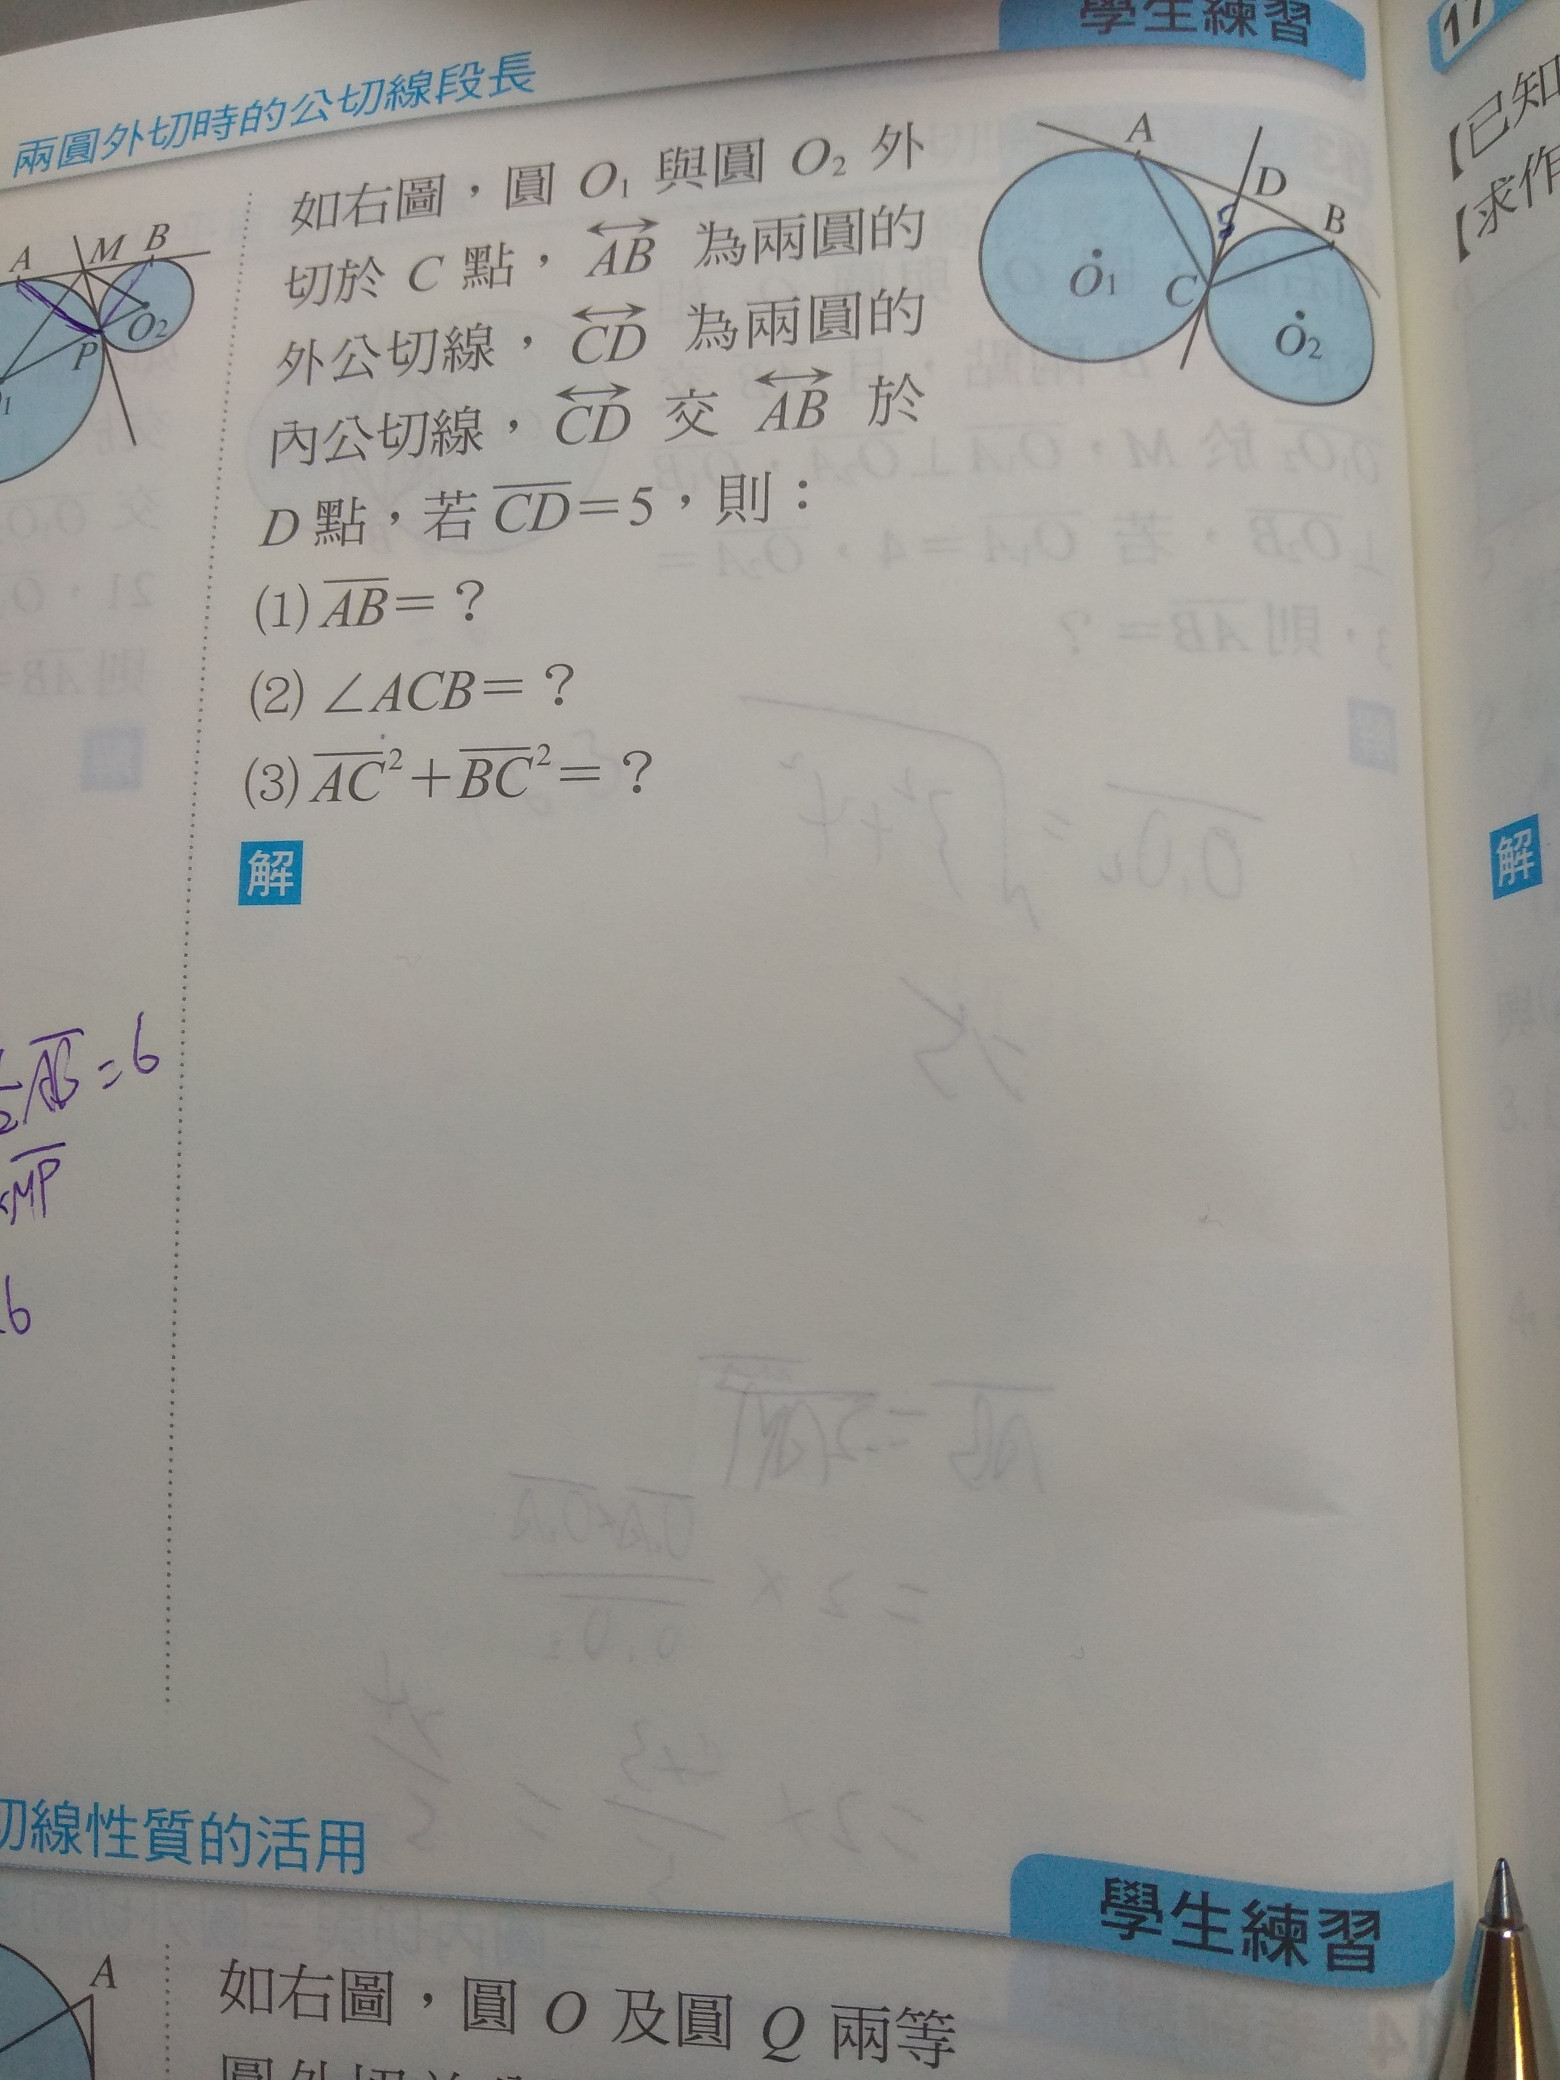 學生練習
兩圓外切時的公切線段長
17
【已知
【求作
A M B
O2
P
1
如右圖，圓 O1 與圓 O2 外
切於 C 點，AB 為兩圓的
外公切線，CD 為兩圓的
內公切線，CD 交 AB 於
D 點，若 CD＝5，則：
(1) AB＝？
(2) ∠ACB＝？
(3) AC²＋BC²＝？
A
D
5
B
O1
C
O2
解
解
AB=6
MP
6
切線性質的活用
學生練習
A
如右圖，圓 O 及圓 Q 兩等